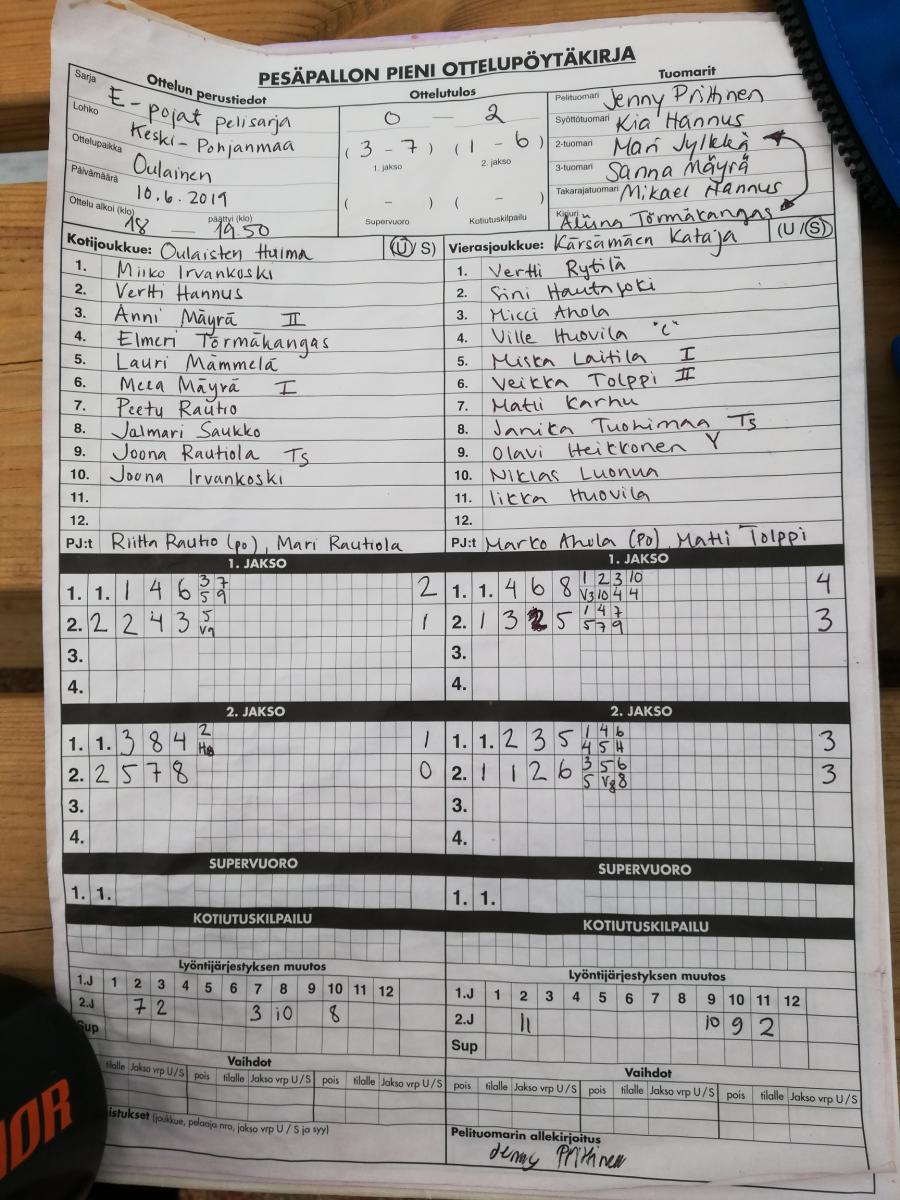 PESÄPALLON PIENI OTTELUPÖYTÄKIRJA
Ottelun perustiedot
Sarja E-pojat pelisarja
Lohko Keski-Pohjanmaa
Ottelupaikka Oulainen
Päivämäärä 10.6.2019
Ottelu alkoi (klo) 18 — päättyi (klo) 19.50
Ottelutulos
0 — 2
(3 - 7) (1 - 6)
1. jakso 2. jakso
( - ) ( - )
Supervuoro Kotiutuskilpailu
Tuomarit
Pelituomari Jenny Prittinen
Syöttötuomari Kia Hannus
2-tuomari Mari Jylkkä
3-tuomari Sanna Mäyrä
Takarajatuomari Mikael Hannus
Kirjuri Aliina Törmäkangas
Kotijoukkue: Oulaisten Huima (U/S)
1. Miiko Irvankoski
2. Vertti Hannus
3. Anni Mäyrä II
4. Elmeri Törmäkangas
5. Lauri Mämmelä
6. Meea Mäyrä I
7. Peetu Rautio
8. Jalmari Saukko
9. Joona Rautiola Ts
10. Joona Irvankoski
11.
12.
PJ:t Riitta Rautio (po), Mari Rautiola
Vierasjoukkue: Kärsämäen Kataja (U/S)
1. Vertti Rytilä
2. Sini Hautajoki
3. Micci Ahola
4. Ville Huovila "C"
5. Miska Laitila I
6. Veikka Tolppi II
7. Matti Karhu
8. Janika Tuohimaa Ts
9. Olavi Heikkonen Y
10. Niklas Luonua
11. Iikka Huovila
12.
PJ:t Marko Ahola (Po), Matti Tolppi
1. JAKSO
1. 1. 1 4 6 3 7 2
5 9
2. 2 2 4 3 5 1
V9
3.
4.
1. JAKSO
1. 1. 4 6 8 1 2 3 10 4
V3 10 4 4
2. 1 3 2 5 1 4 7 3
5 7 9
3.
4.
2. JAKSO
1. 1. 3 8 4 2 1
2. 2 5 7 8 0
3.
4.
2. JAKSO
1. 1. 2 3 5 1 4 6 3
4 5 H
2. 1 1 2 6 3 5 6 3
5 V8 8
3.
4.
SUPERVUORO
1. 1.
SUPERVUORO
1. 1.
KOTIUTUSKILPAILU
KOTIUTUSKILPAILU
Lyöntijärjestyksen muutos
1.J 1 2 3 4 5 6 7 8 9 10 11 12
2.J 7 2 3 10 8
Sup
Lyöntijärjestyksen muutos
1.J 1 2 3 4 5 6 7 8 9 10 11 12
2.J 11 10 9 2
Sup
Vaihdot
tilalle Jakso vrp U/S pois tilalle Jakso vrp U/S pois tilalle Jakso vrp U/S
Vaihdot
pois tilalle Jakso vrp U/S pois tilalle Jakso vrp U/S pois tilalle Jakso vrp U/S
(joukkue, pelaaja nro, jakso vrp U / S ja syy)
Pelituomarin allekirjoitus
Jenny Prittinen